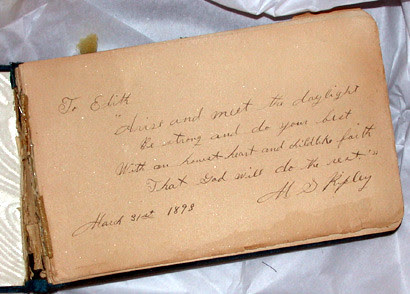 To Edith
"Arise and meet the daylight
Be strong and do your best
With an honest heart and childlike faith
That God will do the rest."
M S Ripley
March 31st 1893